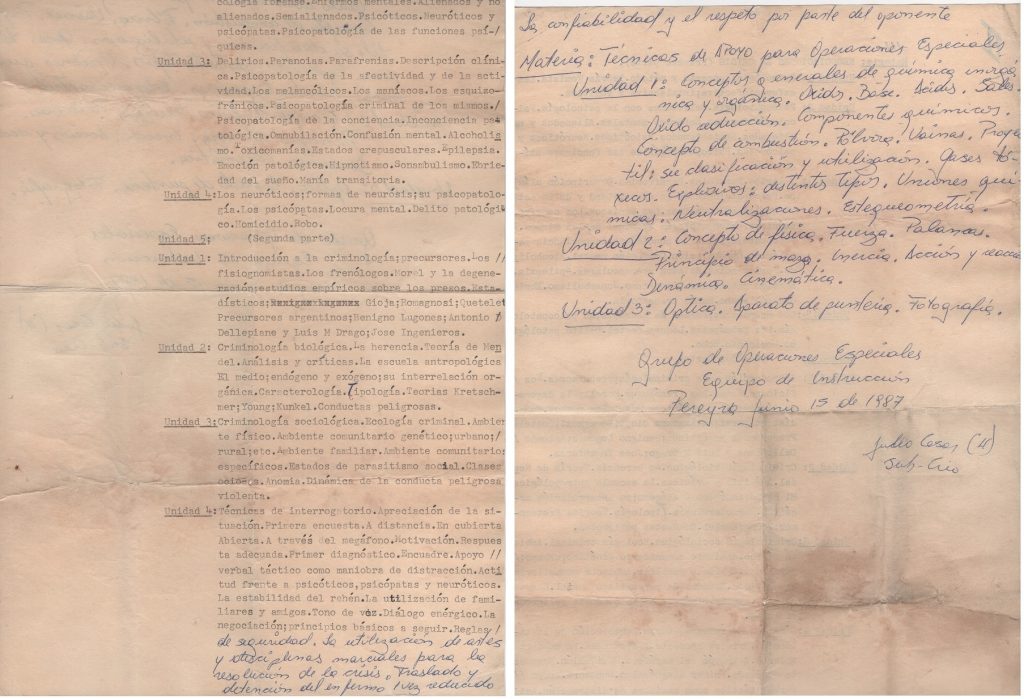 cología forense.Enfermos mentales.Alienados y no
alienados.Semialienados.Psicóticos.Neuróticos y
psicópatas.Psicopatología de las funciones psí-/
quicas.
Unidad 3: Delirios.Paranoias.Parafrenias.Descripción clíni-
ca.Psicopatología de la afectividad y de la acti-
vidad.Los melancólicos.Los maníacos.Los esquizo-
frénicos.Psicopatología criminal de los mismos./
Psicopatología de la conciencia.Inconciencia pa-
tológica.Omnubilación.Confusión mental.Alcoholis
mo.Toxicomanías.Estados crepusculares.Epilepsia.
Emoción patológica.Hipnotismo.Sonambulismo.Ebrie-
dad del sueño.Manía transitoria.
Unidad 4:Los neuróticos;formas de neurósis;su psicopatolo-
gía.Los psicópatas.Locura mental.Delito patológi
co.Homicidio.Robo.
Unidad 5: (Segunda parte)
Unidad 1: Introducción a la criminología;precursores.Los //
fisiognomistas.Los frenólogos.Morel y la degene-
ración;estudios empíricos sobre los presos.Esta-
dísticos; Gioja;Romagnosi;Quetelet
Precursores argentinos;Benigno Lugones;Antonio /
Dellepiane y Luis M Drago;Jose Ingenieros.
Unidad 2: Criminología biológica.La herencia.Teoría de Men
del.Análisis y críticas.La escuela antropológica
El medio;endógeno y exógeno;su interrelación or-
gánica.Caracterología.Tipología.Teorias Kretsch-
mer;Young;Kunkel.Conductas peligrosas.
Unidad 3:Criminología sociológica.Ecología criminal.Ambien
te físico.Ambiente comunitario genético;urbano;/
rural;etc.Ambiente familiar.Ambiente comunitario
específicos.Estados de parasitismo social.Clases
ociosas.Anomia.Dinámica de la conducta peligrosa
violenta.
Unidad 4:Técnicas de interrogatorio.Apreciación de la si-
tuación.Primera encuesta.A distancia.En cubierta
Abierta.A través del megáfono.Motivación.Respues
ta adecuada.Primer diagnóstico.Encuadre.Apoyo //
verbal táctico como maniobra de distracción.Acti
tud frente a psicóticos,psicópatas y neuróticos.
La estabilidad del rehén.La utilización de fami-
liares y amigos.Tono de voz.Diálogo enérgico.La
negociación;principios básicos a seguir.Reglas/
de seguridad. La utilización de artes
y disciplinas marciales para la
resolución de la crisis. Traslado y
detención del enfermo 1 vez reducido
La confiabilidad y el respeto por parte del oponente
Materia: Técnicas de Apoyo para Operaciones Especiales
Unidad 1: Conceptos generales de química inorgá-
nica y orgánica. Oxido. Base. Acidos. Sales.
Oxido reducción. Componentes químicos.
Concepto de combustión. Pólvora. Vainas. Proyec
til: su clasificación y utilización. Gases tó-
xicos. Explosivos: distintos tipos. Uniones quí-
micas: Neutralizaciones. Estequeometría.
Unidad 2: Concepto de física. Fuerza. Palancas.
Principio de masa. Inercia. Acción y reacción
Dinámica. Cinemática.
Unidad 3: Optica. Aparato de puntería. Fotografía.
Grupo de Operaciones Especiales
Equipo de Instrucción
Pereyra Junio 15 de 1987
Julio (H)